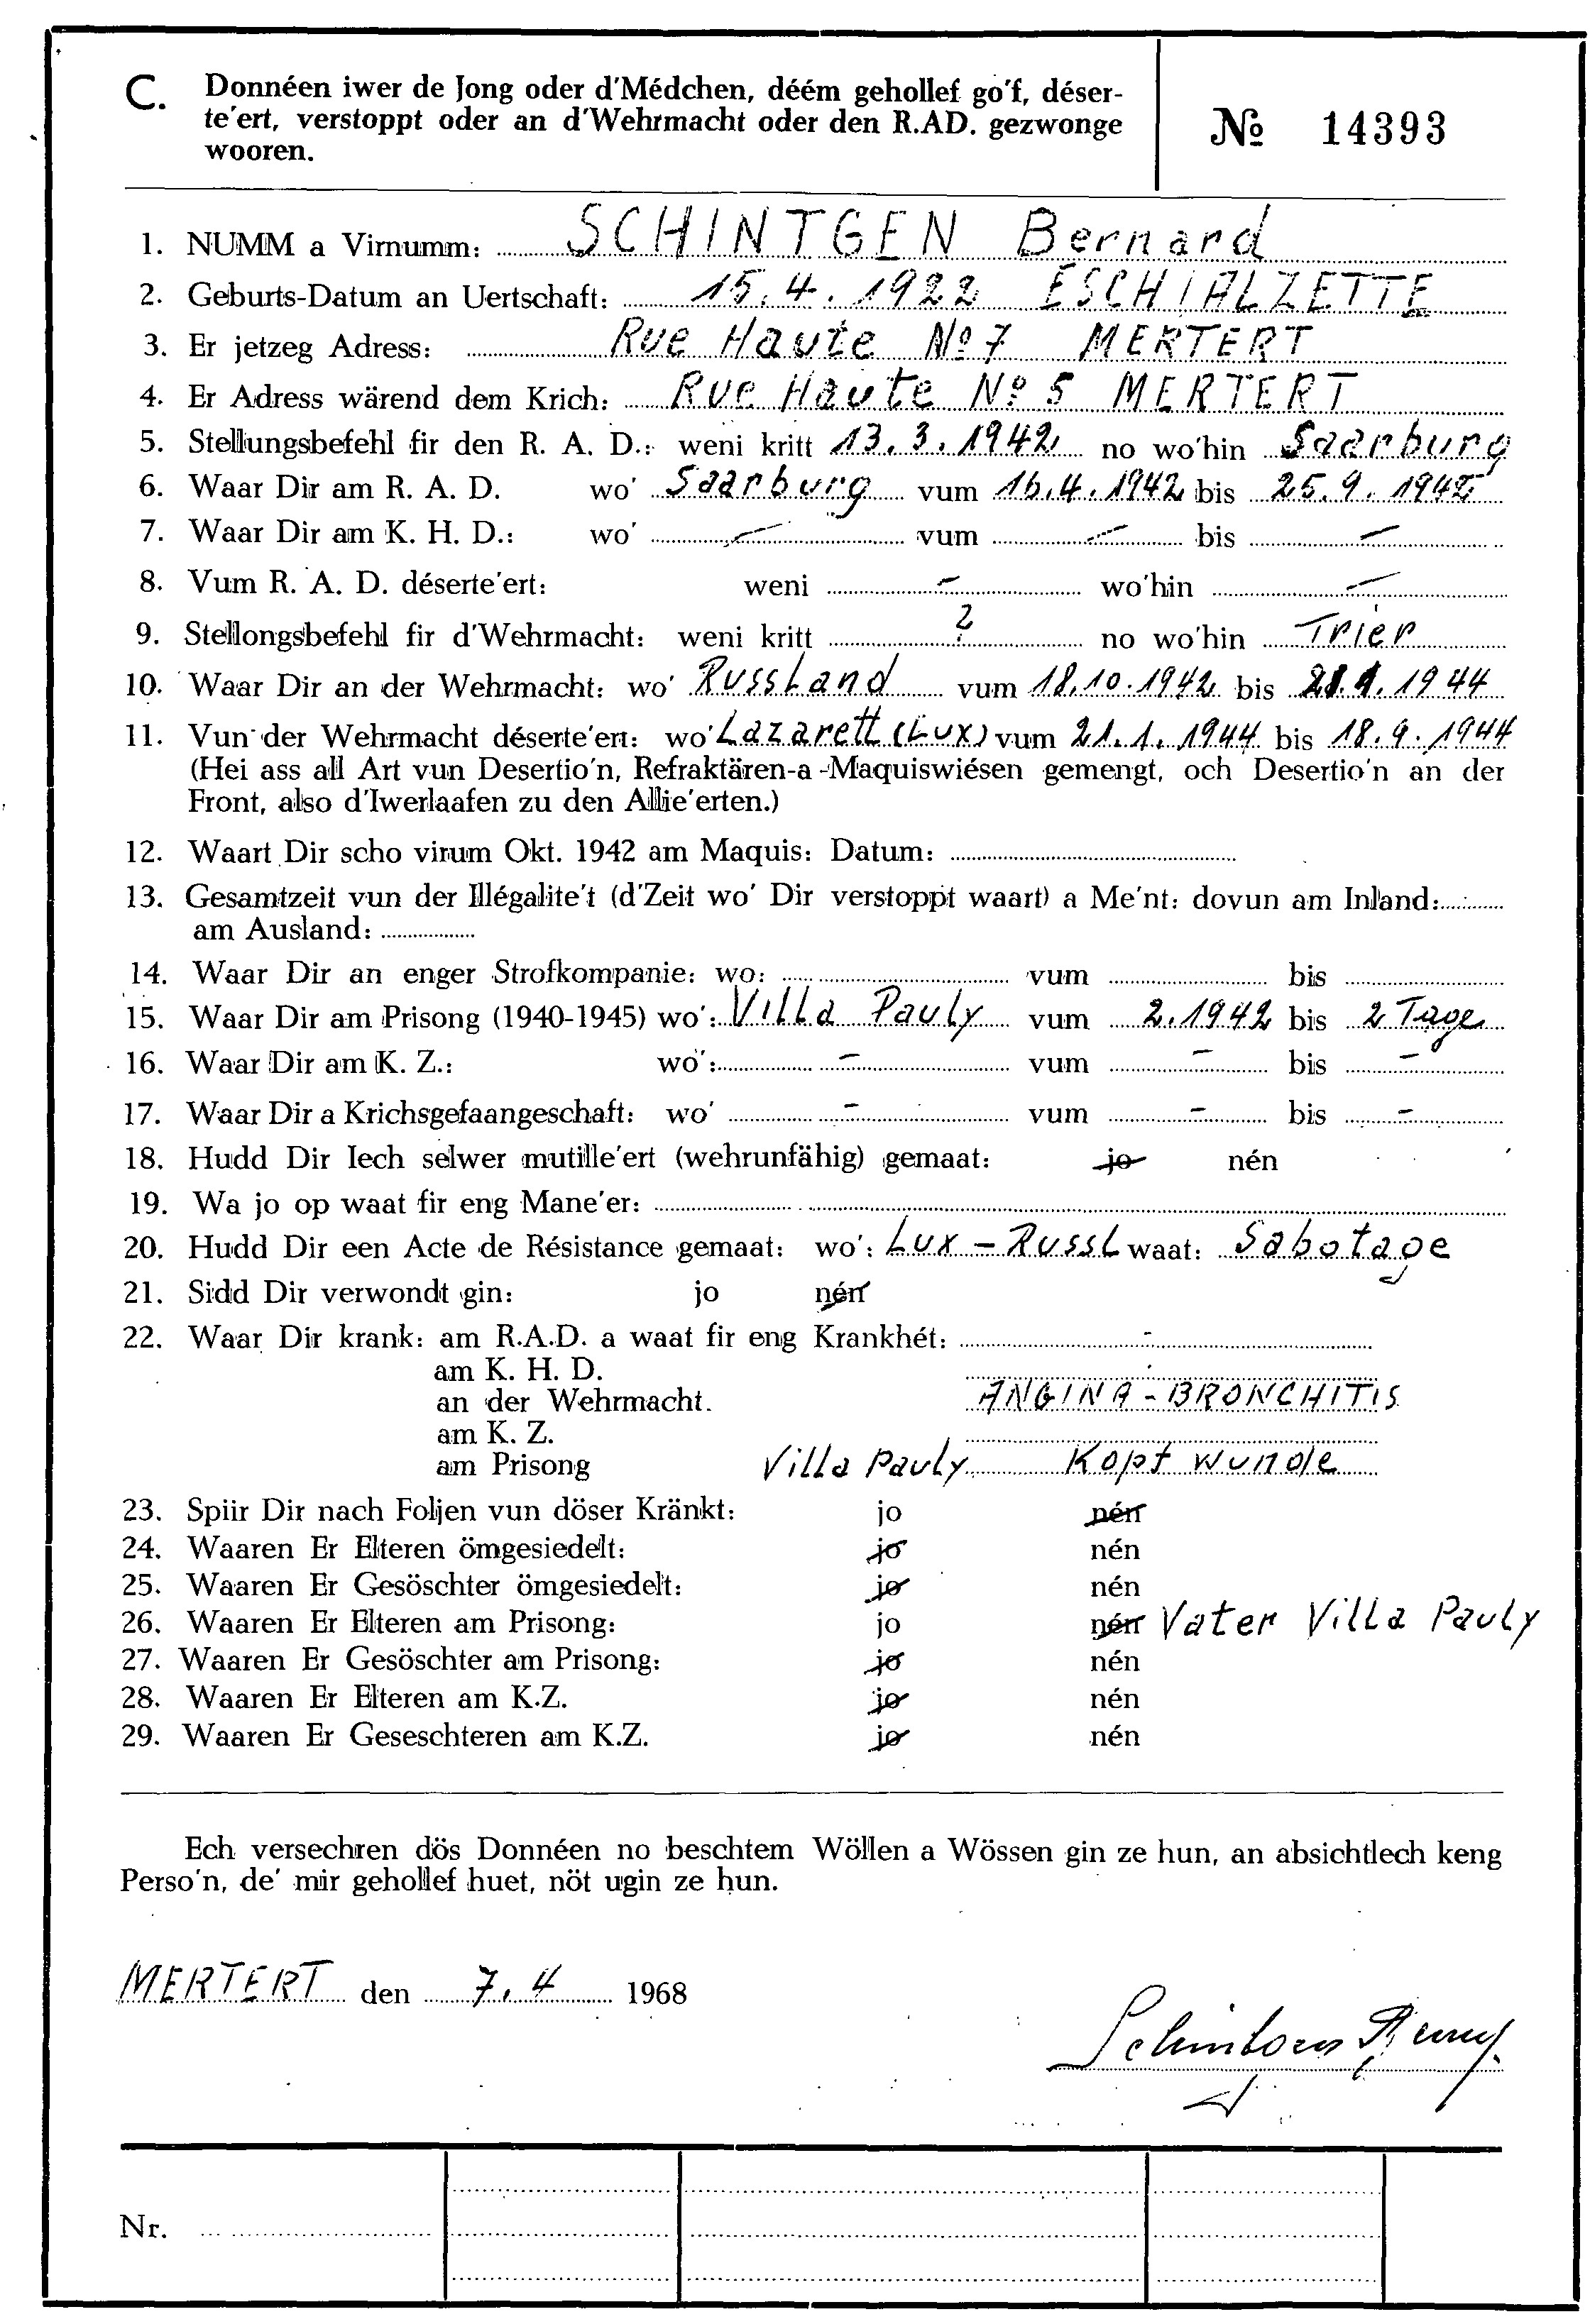 C. Donnéen iwer de Jong oder d'Médchen, déém gehollef go'f, déser-
te'ert, verstoppt oder an d'Wehrmacht oder den R.AD. gezwonge
wooren.
№ 14393
1. NUMM a Virnumm: SCHINTGEN Bernard
2. Geburts-Datum an Uertschaft: 15.4.1922 ESCH/ALZETTE
3. Er jetzeg Adress: Rue Haute Nº 7 MERTERT
4. Er Adress wärend dem Krich: Rue Haute Nº 5 MERTERT
5. Stellungsbefehl fir den R. A. D.: weni kritt 13.3.1942 no wo'hin Saarburg
6. Waar Dir am R. A. D. wo' Saarburg vum 16.4.1942 bis 25.9.1942
7. Waar Dir am K. H. D.: wo' — vum — bis —
8. Vum R. A. D. déserte'ert: weni — wo'hin —
9. Stellongsbefehl fir d'Wehrmacht: weni kritt ? no wo'hin Trier
10. Waar Dir an der Wehrmacht: wo' Russland vum 18.10.1942 bis 21.1.1944
11. Vun der Wehrmacht déserte'ert: wo' Lazarett (Lux) vum 21.1.1944 bis 18.9.1944
(Hei ass all Art vun Desertio'n, Refraktären-a-Maquiswiésen gemengt, och Desertio'n an der
Front, also d'Iwerlaafen zu den Allie'erten.)
12. Waart Dir scho virum Okt. 1942 am Maquis: Datum:
13. Gesamtzeit vun der Illégalite't (d'Zeit wo' Dir verstoppt waart) a Me'nt: dovun am Inland:
am Ausland:
14. Waar Dir an enger Strofkompanie: wo: vum bis
15. Waar Dir am Prisong (1940-1945) wo': Villa Pauly vum 2.1942 bis 2 Tage
16. Waar Dir am K. Z.: wo': — vum — bis —
17. Waar Dir a Krichsgefaangeschaft: wo' — vum — bis —
18. Hudd Dir Iech selwer mutille'ert (wehrunfähig) gemaat: jo nén
19. Wa jo op waat fir eng Mane'er:
20. Hudd Dir een Acte de Résistance gemaat: wo': Lux - Russl waat: Sabotage
21. Sidd Dir verwondt gin: jo nén
22. Waar Dir krank: am R.A.D. a waat fir eng Krankhét: -
am K. H. D.
an der Wehrmacht. ANGINA - BRONCHITIS
am K. Z.
am Prisong Villa Pauly Kopf wunde
23. Spiir Dir nach Foljen vun döser Kränkt: jo nén
24. Waaren Er Elteren ömgesiedelt: jo nén
25. Waaren Er Gesöschter ömgesiedelt: jo nén
26. Waaren Er Elteren am Prisong: jo nén Vater Villa Pauly
27. Waaren Er Gesöschter am Prisong: jo nén
28. Waaren Er Elteren am K.Z. jo nén
29. Waaren Er Geseschteren am K.Z. jo nén
Ech versechren dös Donnéen no beschtem Wöllen a Wössen gin ze hun, an absichtlech keng
Perso'n, de' mir gehollef huet, nöt ugin ze hun.
MERTERT den 7.4 1968
Nr.